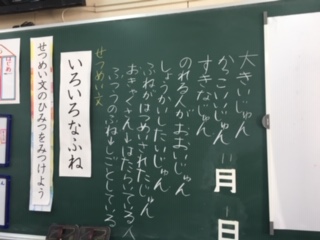 十一月一日
大きいじゅん
かっこいいじゅん
すきなじゅん
のれる人がおおいじゅん
しょうかいしたいじゅん
ふねがはつめいされたじゅん
おきゃくさん↓はたらいている人
ふつうのふね↓しごとしている
せつめい文
いろいろなふね
せつめい文のひみつをみつけよう